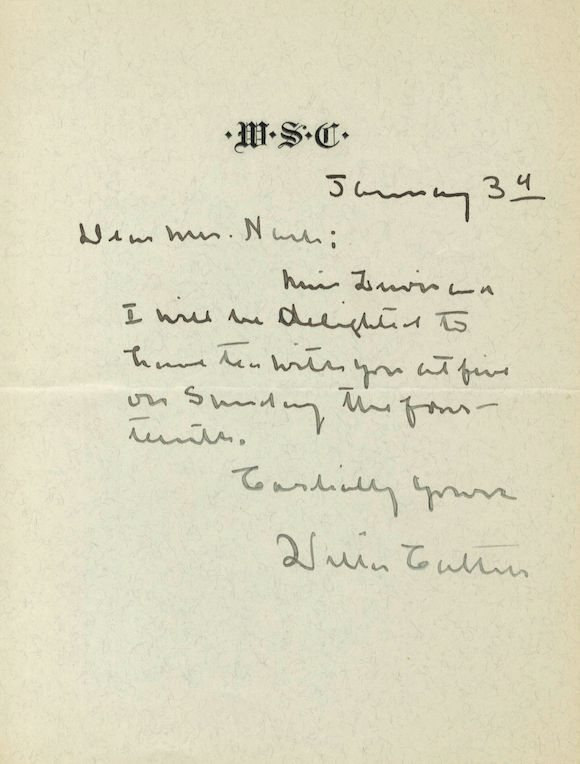 ·W·S·C·
January 3rd
Dear Mrs. Nash:
Miss Lewis and
I will be delighted to
have tea with you at five
on Sunday the four-
teenth.
Cordially yours
Willa Cather